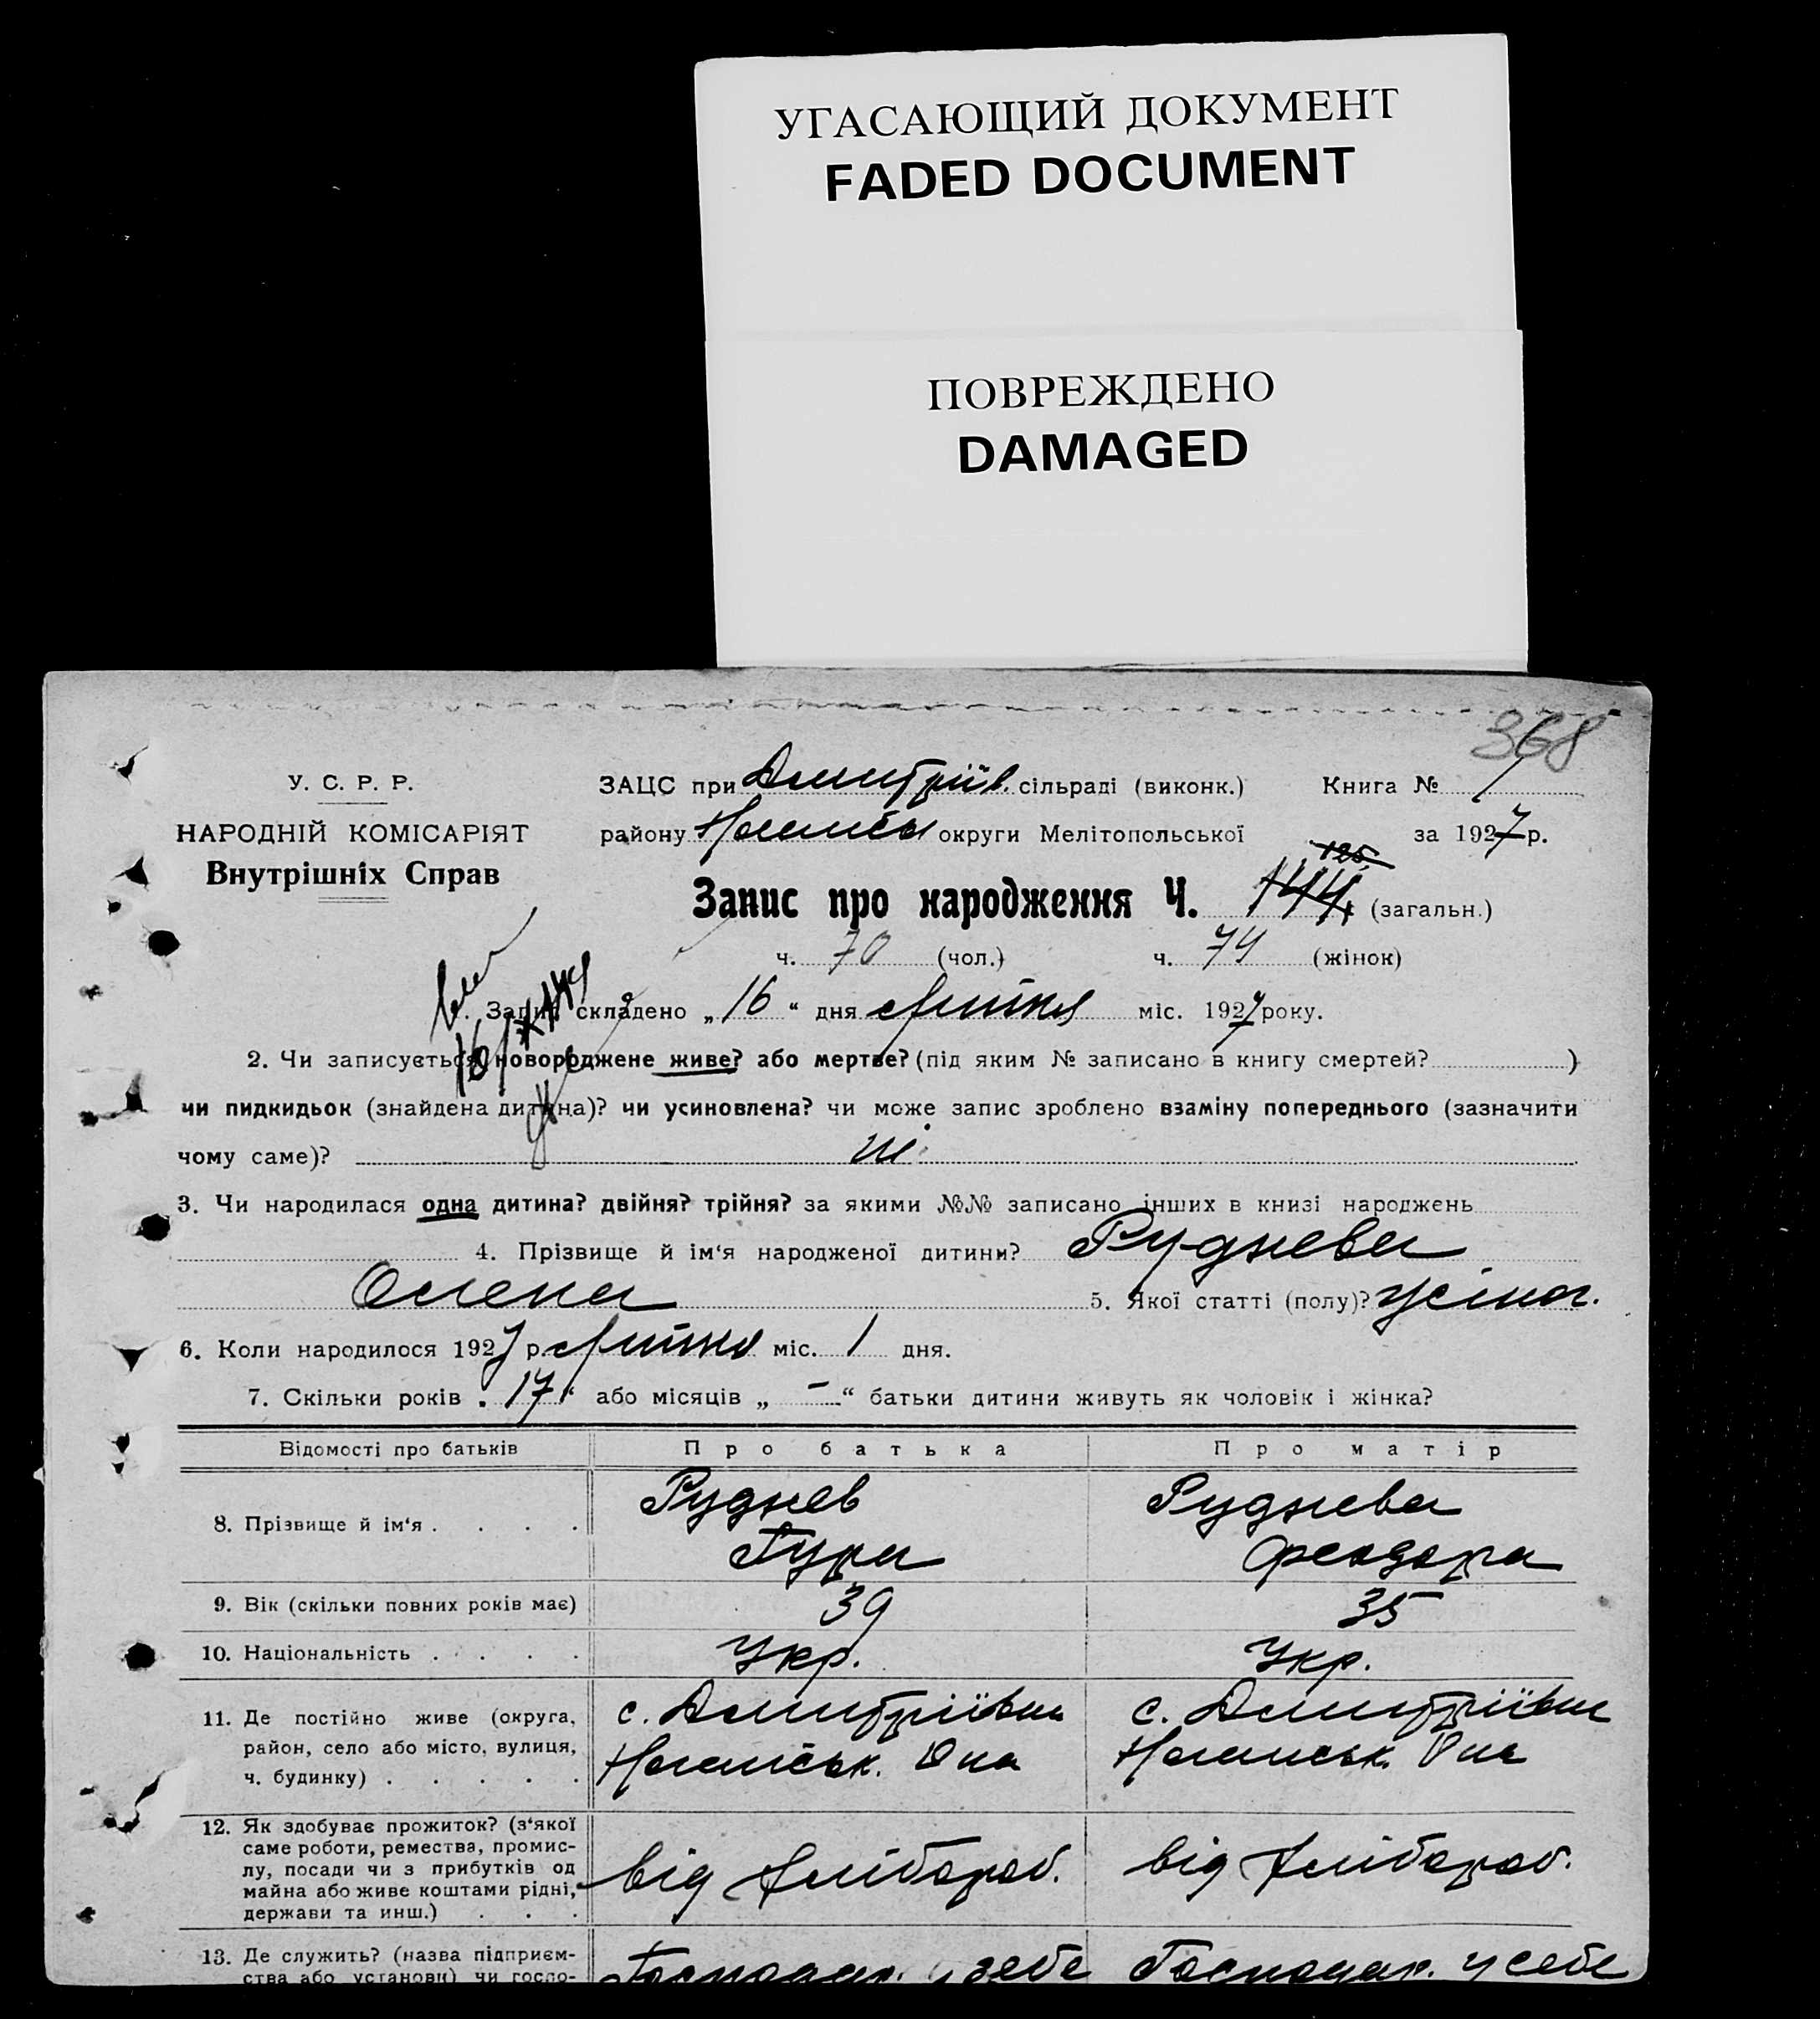 УГАСАЮЩИЙ ДОКУМЕНТ
FADED DOCUMENT
ПОВРЕЖДЕНО
DAMAGED
368
У. С. Р. Р.
НАРОДНІЙ КОМІСАРІЯТ
Внутрішніх Справ
ЗАЦС при Дмитріїв. сільраді (виконк.) Книга № 1
району округи Мелітопольської за 1927 р.
125
Запис про народження Ч. 144 (загальн.)
ч. 70 (чол.) ч. 74 (жінок)
1. Запис складено „16“ дня міс. 1927 року.
2. Чи записується новороджене живе? або мертве? (під яким № записано в книгу смертей? )
чи пидкидьок (знайдена дитина)? чи усиновлена? чи може запис зроблено взаміну попереднього (зазначити
чому саме)? ні
3. Чи народилася одна дитина? двійня? трійня? за якими №№ записано інших в книзі народжень
4. Прізвище й ім‘я народженої дитини? Руднева
Олена 5. Якої статті (полу)? жіноч.
6. Коли народилося 1927 р. міс. 1 дня.
7. Скільки років „17“ або місяців „ – “ батьки дитини живуть як чоловік і жінка?
Відомості про батьків Про батька Про матір
8. Прізвище й ім‘я . . . . Руднев Руднева
Гура Феодора
9. Вік (скільки повних років має) 39 35
10. Національність . . . . Укр. Укр.
11. Де постійно живе (округа, с. Дмитріївка с. Дмитріївка
район, село або місто, вулиця,
ч. будинку) . . . . . Ногайськ. Р-на Ногайськ. Р-на
12. Як здобуває прожиток? (з‘якої
саме роботи, ремества, промис-
лу, посади чи з прибутків од
майна або живе коштами рідні, від хлібороб. від хлібороб.
держави та инш.) . . .
13. Де служить? (назва підприєм- Господар. у себе Господар. у себе
ства або установи) чи госпо-